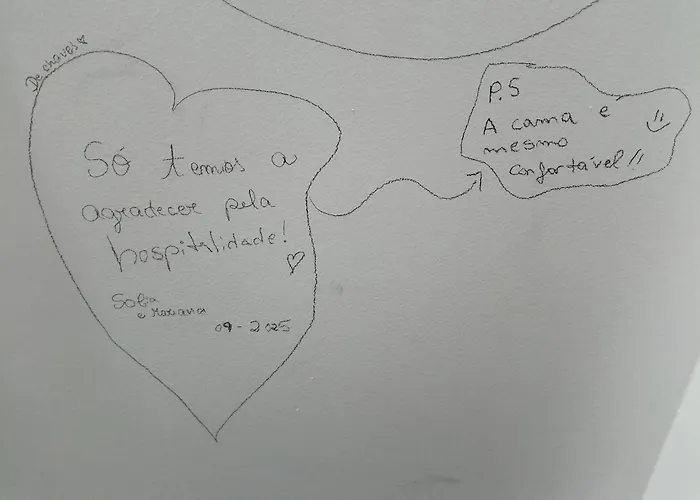 De chaves ♡
Só temos a
agradecer pela
hospitalidade!
♡
Sofia
e Mariana
09-2025
P.S
A cama e
mesmo
confortável!!